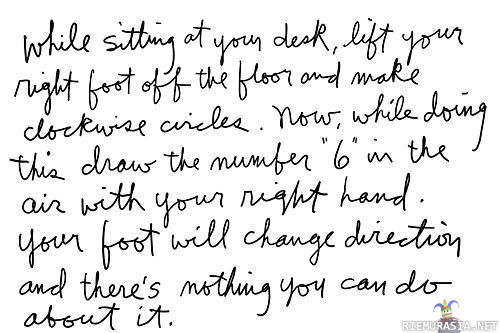 While sitting at your desk, lift your
right foot off the floor and make
clockwise circles. Now, while doing
this draw the number "6" in the
air with your right hand.
Your foot will change direction
and there's nothing you can do
about it.
RIEMURASIA.NET